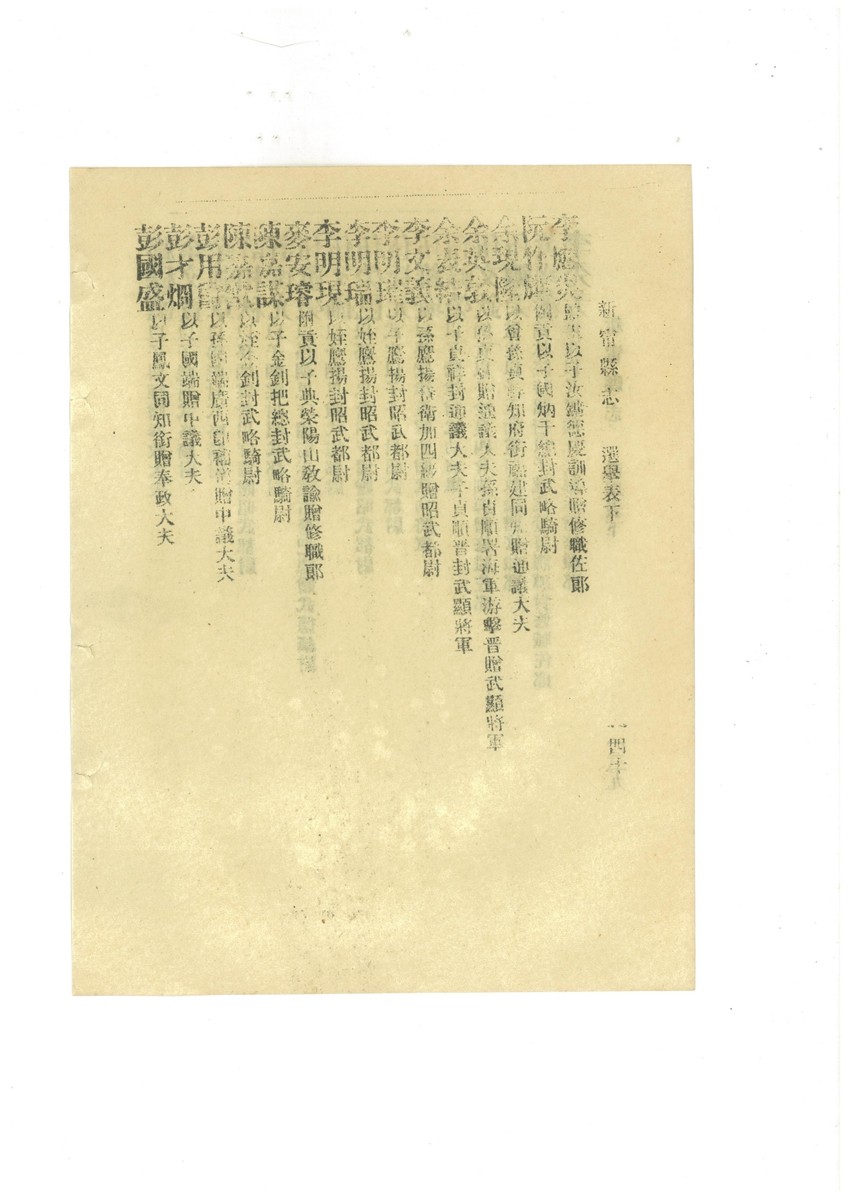 新甯縣志 選舉表下
李應 以子汝 德慶訓導贈修職佐郎
阮作 貢以子國炳千總封武略騎尉
余現 以曾孫貞 知府銜 建同知贈通議大夫
余英敦 以孫貞 贈通議大夫孫貞順署海軍游擊晋贈武顯將軍
余表 以子貞 封通議大夫子貞順晋封武顯將軍
李文義 以孫應揚 衛加四級贈昭武都尉
李明 以子應揚封昭武都尉
李明瑞 以姪應揚封昭武都尉
李明現 以姪應揚封昭武都尉
麥安璿 附貢以子典榮陽山敎諭贈修職郎
陳嘉謀 以子金釗把總封武略騎尉
陳嘉 以姪金釗封武略騎尉
彭用 以孫國端廣西 贈中議大夫
彭才烱 以子國端贈中議大夫
彭國盛 以子鳳文同知銜贈奉政大夫